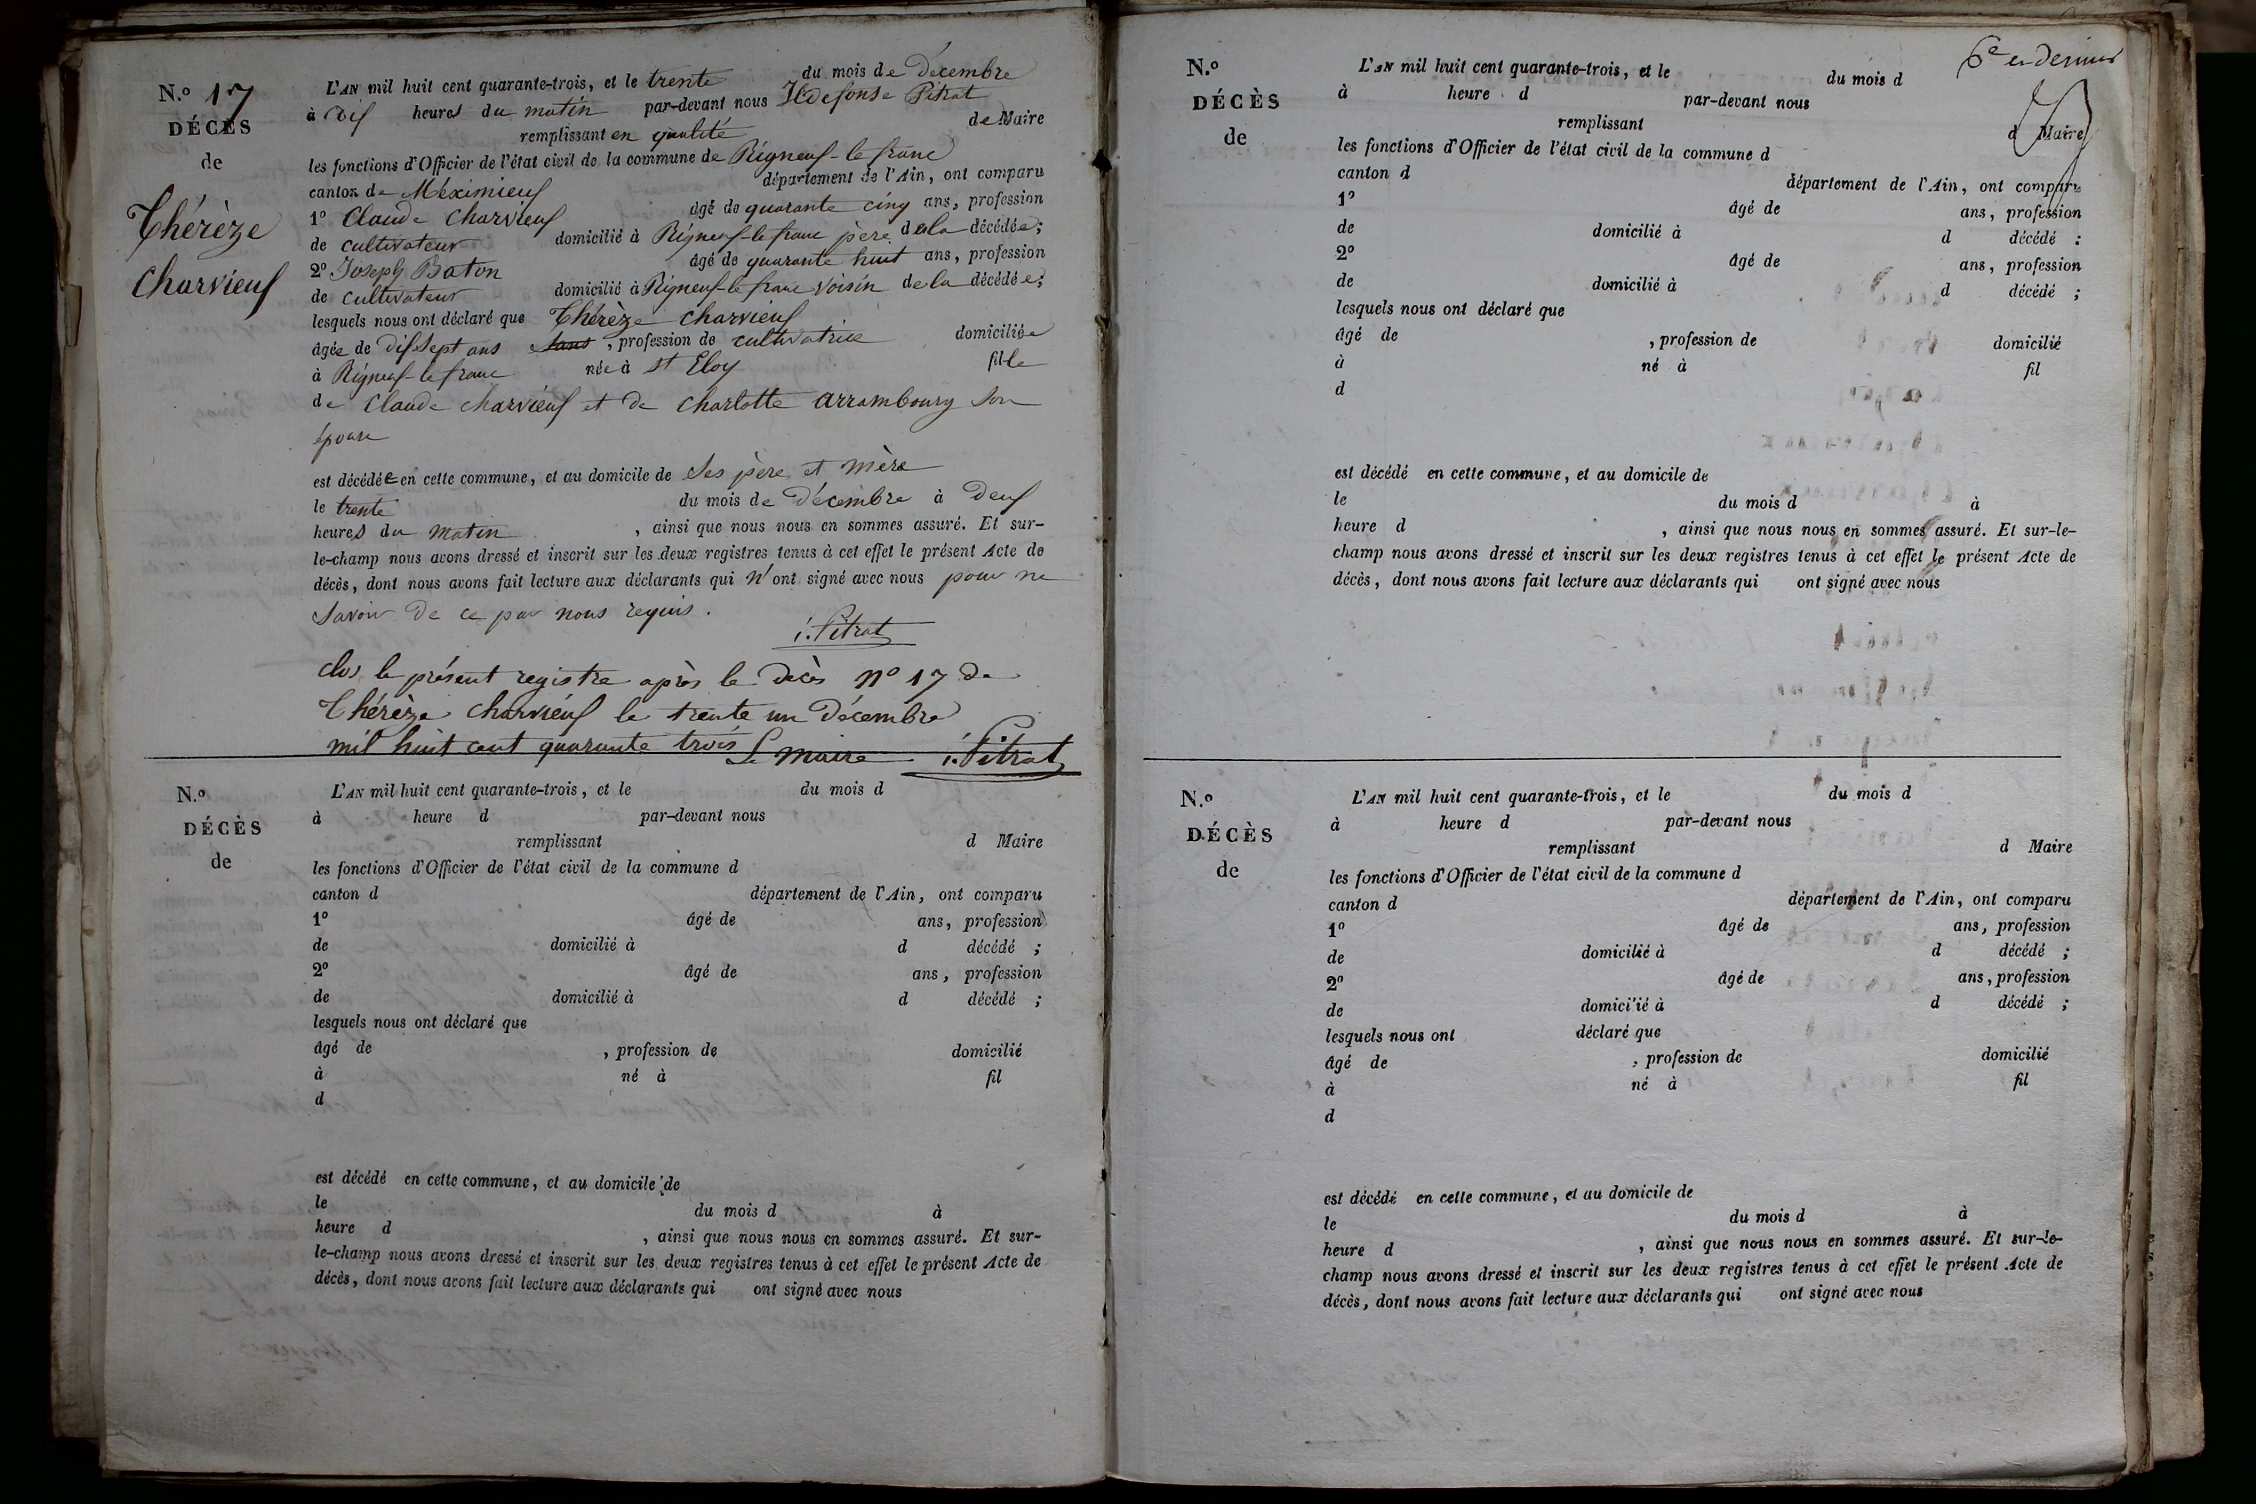 N.º 17
DÉCÈS
de
Thérèze
Charvieux
L'AN mil huit cent quarante-trois, et le trente du mois de Décembre
à Dix heures du matin par-devant nous Ildefonse Pitrat
remplissant en qualité de Maire
les fonctions d'Officier de l'état civil de la commune de Rigneux-le franc
canton de Méximieux département de l'Ain, ont comparu
1º Claude Charvieux âgé de quarante cinq ans, profession
de cultivateur domicilié à Rigneux-le franc père de la décédée;
2º Joseph Baton âgé de quarante huit ans, profession
de cultivateur domicilié à Rigneux-le franc voisin de la décédée;
lesquels nous ont déclaré que Thérèze Charvieux
âgée de dix sept ans sans, profession de cultivatrice domiciliée
à Rigneux-le franc née à St Eloy fille
de Claude Charvieux et de Charlotte Arrambourg son
épouse
est décédée en cette commune, et au domicile de ses père et mère
le trente du mois de Décembre à Deux
heures du matin, ainsi que nous nous en sommes assuré. Et sur-
le-champ nous avons dressé et inscrit sur les deux registres tenus à cet effet le présent Acte de
décès, dont nous avons fait lecture aux déclarants qui n'ont signé avec nous pour ne
savoir de ce par nous requis.
i. Pitrat
clos le présent registre après le Décès nº 17 de
Thérèze Charvieux le trente un Décembre
mil huit cent quarante trois Le maire i. Pitrat
N.º
DÉCÈS
de
L'AN mil huit cent quarante-trois, et le du mois d
à heure d par-devant nous
remplissant d Maire
les fonctions d'Officier de l'état civil de la commune d
canton d département de l'Ain, ont comparu
1º âgé de ans, profession
de domicilié à d décédé ;
2º âgé de ans, profession
de domicilié à d décédé ;
lesquels nous ont déclaré que
âgé de , profession de domicilié
à né à fil
d
est décédé en cette commune, et au domicile de
le du mois d à
heure d , ainsi que nous nous en sommes assuré. Et sur-
le-champ nous avons dressé et inscrit sur les deux registres tenus à cet effet le présent Acte de
décès, dont nous avons fait lecture aux déclarants qui ont signé avec nous
6e et dernier
N.º
DÉCÈS
de
L'AN mil huit cent quarante-trois, et le du mois d
à heure d par-devant nous
remplissant d Maire
les fonctions d'Officier de l'état civil de la commune d
canton d département de l'Ain, ont comparu
1º âgé de ans, profession
de domicilié à d décédé :
2º âgé de ans, profession
de domicilié à d décédé ;
lesquels nous ont déclaré que
âgé de , profession de domicilié
à né à fil
d
est décédé en cette commune, et au domicile de
le du mois d à
heure d , ainsi que nous nous en sommes assuré. Et sur-le-
champ nous avons dressé et inscrit sur les deux registres tenus à cet effet le présent Acte de
décès, dont nous avons fait lecture aux déclarants qui ont signé avec nous
N.º
DÉCÈS
de
L'AN mil huit cent quarante-trois, et le du mois d
à heure d par-devant nous
remplissant d Maire
les fonctions d'Officier de l'état civil de la commune d
canton d département de l'Ain, ont comparu
1º âgé de ans, profession
de domicilié à d décédé ;
2º âgé de ans, profession
de domici'ié à d décédé ;
lesquels nous ont déclaré que
âgé de , profession de domicilié
à né à fil
d
est décédé en cette commune, et au domicile de
le du mois d à
heure d , ainsi que nous nous en sommes assuré. Et sur-le-
champ nous avons dressé et inscrit sur les deux registres tenus à cet effet le présent Acte de
décès, dont nous avons fait lecture aux déclarants qui ont signé avec nous